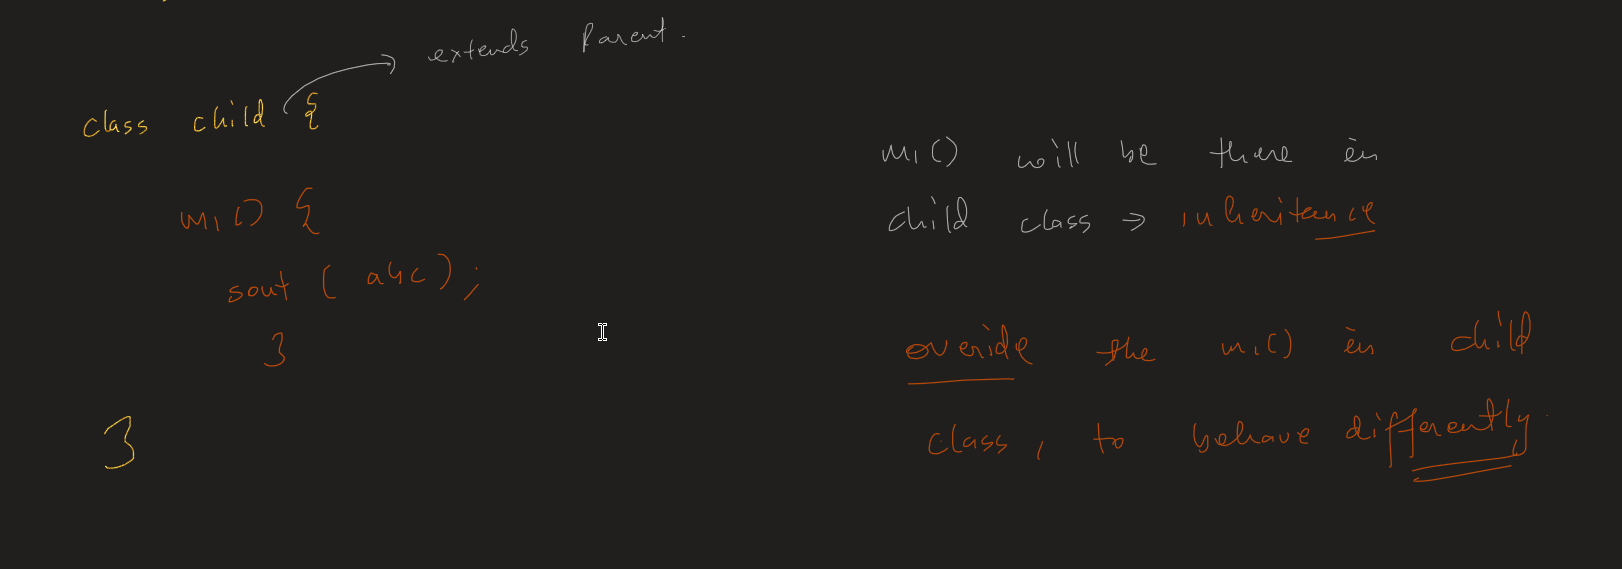 extends Parent.
class child {
m1() {
sout ( abc ) ;
}
}
m1() will be there in
child class → inheritance
overide the m1() in child
class, to behave differently